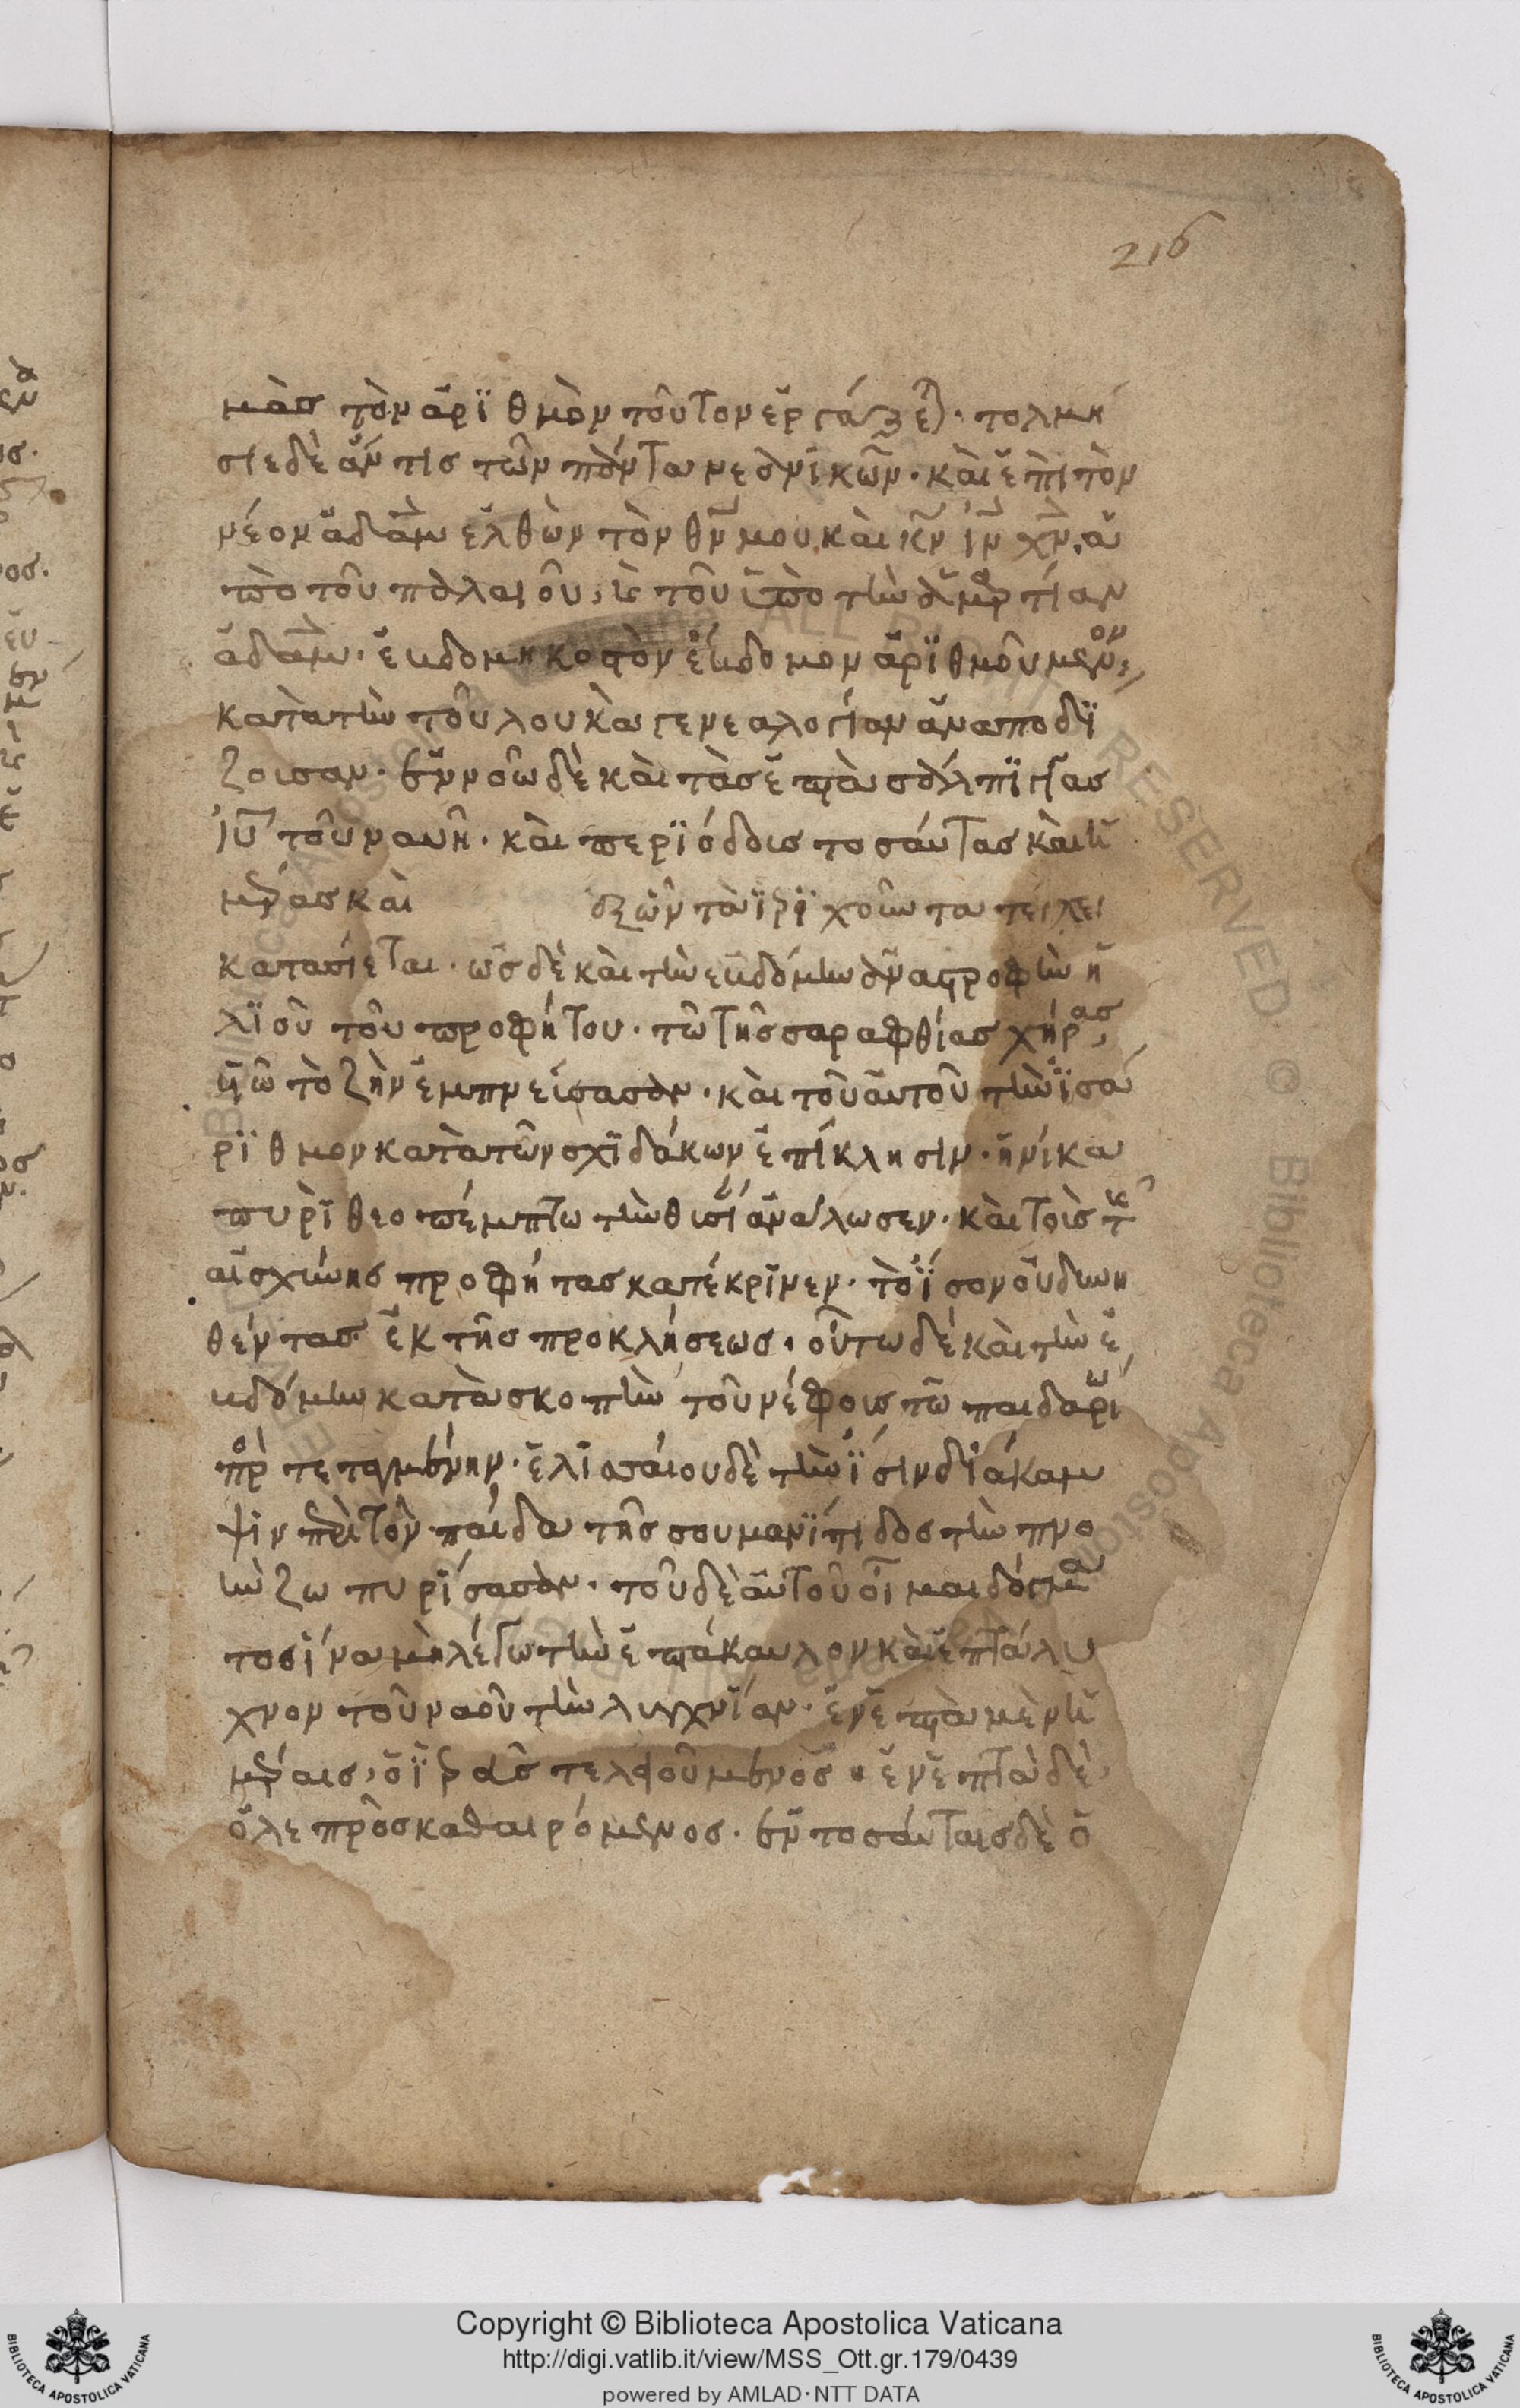 216
μὰσ τὸν ἀρϊθμὸν τοῦτον ἐργάζε). τολμή
σιεδὲ ἄν τισ τῶν πάντα νεανικῶν. καὶ ἐπὶ τὸν
νέον ἀδὰμ ἐλθὼν τὸν θν μου καὶ κν ιν χν, ἀ
πὸ τοῦ παλαιοῦ, κ τοῦ ὑπὸ τὴν ἁμαρτίαν
ἀδὰμ. ἑβδομηκοστὸν ἕβδομον ἀρϊθμούμενον,
κατὰ τὴν τοῦ λουκᾶ γενεαλογίαν ἀναποδϊ
ζουσαν. ἐννοῶ δὲ καὶ τὰσ ἑπτὰ σάλπϊγγας
ιυ τοῦ ναυῆ. καὶ περϊόδουσ τοσάυτασ καὶ ἡ
μέρασ καὶ ἐξ ὧν τὰ ϊερϊχοῦντα τείχει
κατασίεται. ὡσ δὲ καὶ τὴν ἑβδόμην ἀναστροφὴν ἠ
λϊοῦ τοῦ προφήτου. τῶ τῆσ σαραφθίασ χήρασ,
ϋῶ τὸ ζῆν ἐμπνείσασαν. καὶ τοῦ ἀυτοῦ τὴν ϊσά
ρϊθμον κατὰ τῶν σχϊδάκων ἐπίκλησιν. ἡνίκα
πυρὶ θεοπέμπτω τὴν θισί ἀνάλωσεν. καὶ τοὶσ τ
αἰσχύνησ προφήτασ κατέκρϊνεν. τὸ ΐσον οὐδυνη
θέντασ ἐκ τῆσ προκλήσεωσ. οὕτω δὲ καὶ τὴν ἑ
βδόμην κατασκοπὴν τοῦ νέφουσ τῶ παιδαρίω
προτεταγμένην. ἐλϊσαίου δὲ τὴν ΐσιν διάκαμ
ψιν περὶ τὸν παίδα τῆσ σουμανΐτιδοσ τὴν πνο
ὴν ζωπυρΐσασαν. τοῦ δὲ ἀυτοῦ οἶμαι δόγμα
τοσ ἵνα μὴ λέγω τὴν ἑπτάκαυλον καὶ ἑπτάλυ
χνον τοῦ ναοῦ τὴν λυχνΐαν. ἐν ἑπτὰ μὲν ἡ
μέραισ, ὁ ϊερεὺσ τελειοῦμενοσ. ἐν ἑπτὰ δὲ,
ὁ λεπρὸσ καθαιρόμενοσ. ἐν τοσάυταισ δὲ ὁ
Copyright © Biblioteca Apostolica Vaticana
http://digi.vatlib.it/view/MSS_Ott.gr.179/0439
powered by AMLAD·NTT DATA